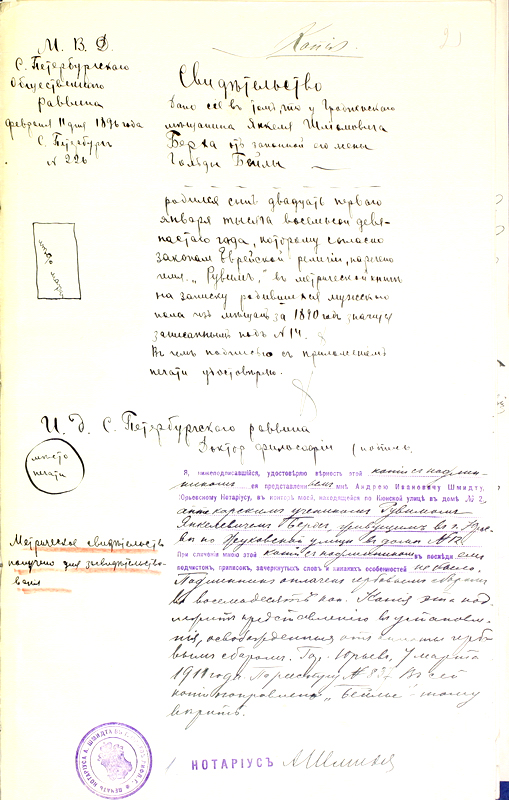 Копія.
21
М. В. Д.
С. Петербургского
Общественнаго
раввина
февраля 11 дня 1896 года
С. Петербургъ
№ 226
Свидѣтельство
Дано сіе въ томъ, что у Гродненскаго
мѣщанина Янкеля Шліомовича
Берха отъ законной его жены
Гольды Бейлы
родился сынъ двадцать перваго
Января тысяча восемьсотъ девя-
ностаго года, которому согласно
законамъ Еврейской религіи, наречено
имя „Рувимъ,” въ метрической книгѣ
на записку родившихся мужескаго
пола изъ мѣщанъ за 1890 годъ значится
записаннымъ подъ № 14.
Въ чемъ подписью съ приложеніемъ
печати удостовѣряю.
И. Д. С. Петербургскаго раввина
Докторъ философіи (подпись
мѣсто
печати
Метрическое свидѣтельство
получено для
Я, нижеподписавшійся, удостовѣряю вѣрность этой копіи съ подлин-
никомъ ея представленнымъ мнѣ Андрею Ивановичу Шмидту,
Юрьевскому Нотаріусу, въ конторѣ моей, находящейся по Книжной улицѣ въ домѣ № 2,
аптекарскимъ ученикомъ Рувимомъ
Янкелевичемъ Берхъ, живущимъ въ г. Юрье-
вѣ по улицѣ въ домѣ № 12.
При сличеніи мною этой копіи съ подлинникомъ въ послѣд-
подчистокъ, приписокъ, зачеркнутыхъ словъ и никакихъ особенностей не было.
Подлинникъ оплаченъ гербовымъ сборомъ
въ восемьдесятъ коп. Копія эта под-
лежитъ представленію въ установле-
нія, освобожденныя отъ гербо-
вымъ сборомъ. Гор. Юрьевъ, 7 марта
1911 года. По реестру № Въ сей
копіи поправлено „Бейлы” тому
вѣрить.
НОТАРІУСЪ АШмидтъ